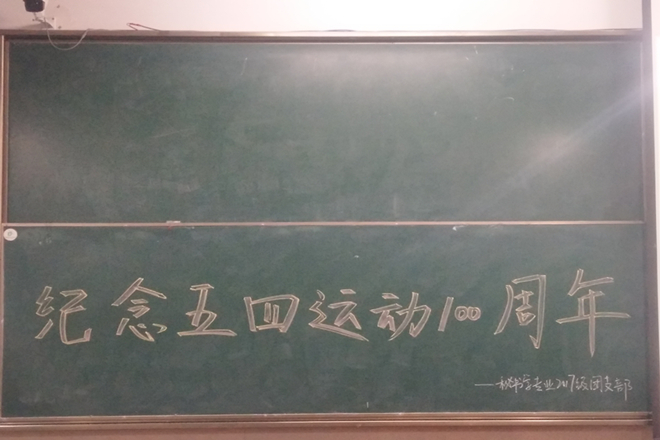 纪念五四运动100周年
——秘书学专业2017级团支部